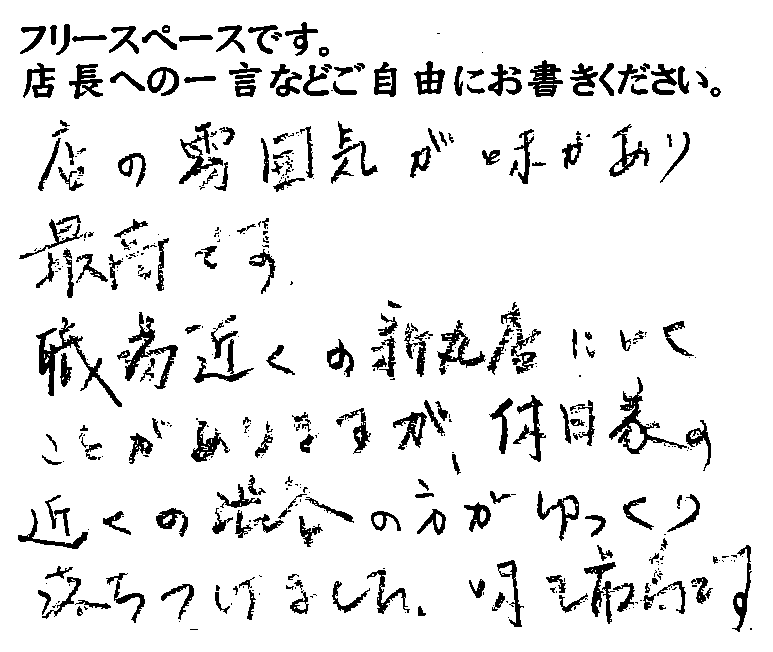 フリースペースです。
店長への一言などご自由にお書きください。
店の雰囲気が味があり
最高です.
職場近くの新丸店にいく
ことがありますが、休日家の
近くの渋谷の方がゆっくり
落ちつけました、味も最高です